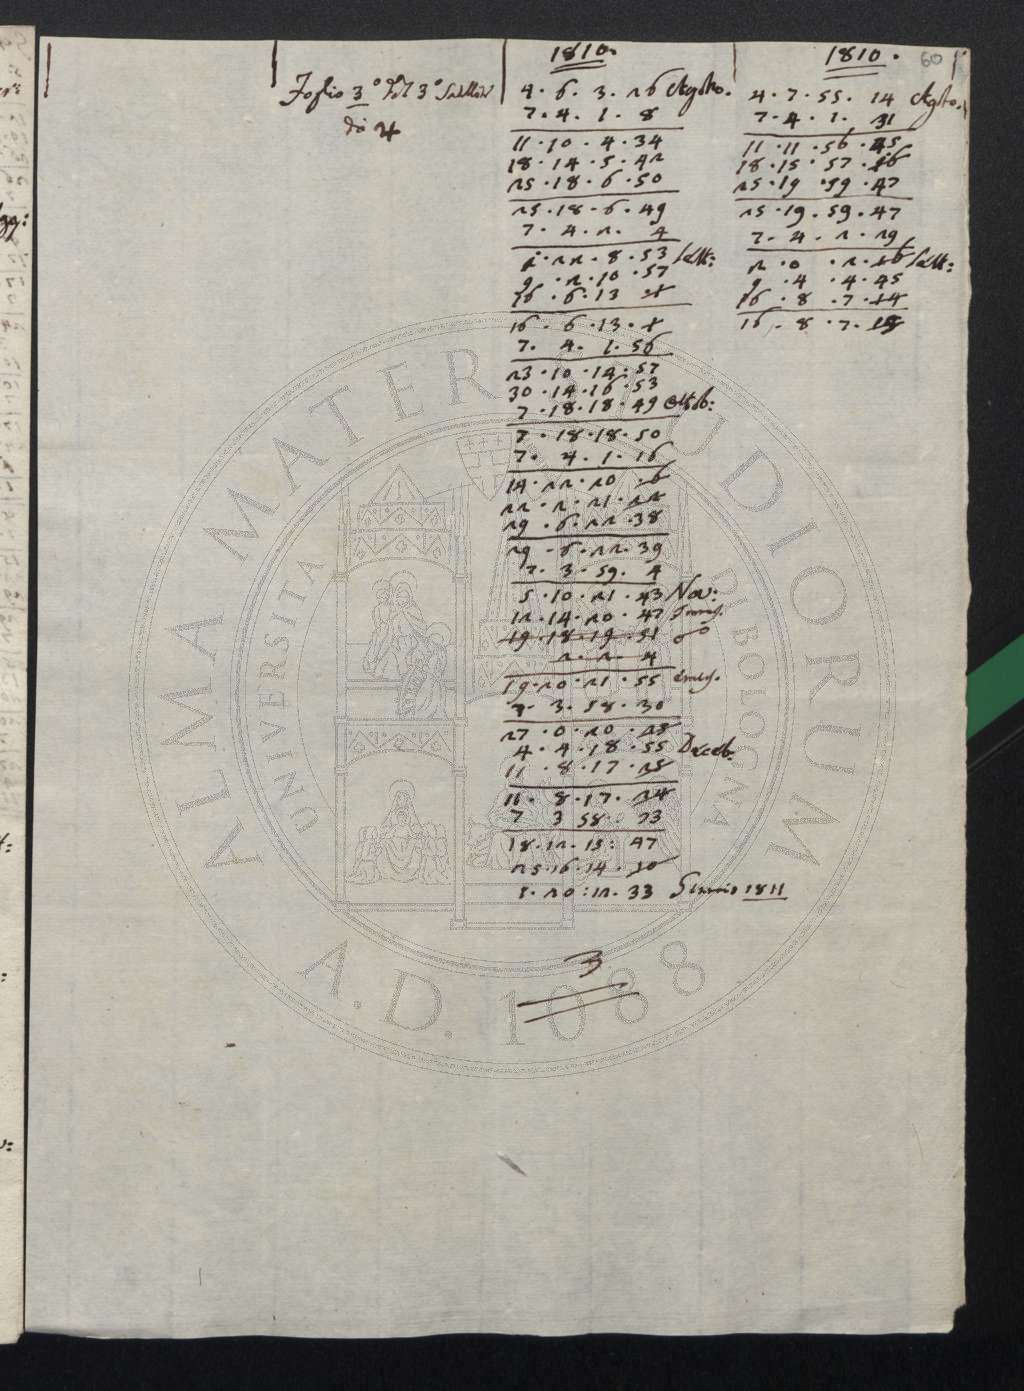 60
Foglio 3° del 3° Satellite
di ♃
1810.
4 . 6 . 3 . 26 Agsto.
7 . 4 . 1 . 8
11 . 10 . 4 . 34
18 . 14 . 5 . 42
25 . 18 . 6 . 50
25 . 18 . 6 . 49
7 . 4 . 2 . 4
1 . 22 . 8 . 53 Sett:
9 . 2 . 10 . 57
16 . 6 . 13 . 1
16 . 6 . 13 . 1
7 . 4 . 1 . 56
23 . 10 . 14 : 57
30 . 14 . 16 . 53
7 . 18 . 18 . 49 Ottob:
7 . 18 . 18 . 50
7 . 4 . 1 . 16
14 . 22 . 20 . 6
22 . 2 . 21 . 22
29 . 6 . 22 . 38
29 . 6 . 22 . 39
7 . 3 . 59 . 4
5 . 10 . 21 . 43 Nov:
12 . 14 . 20 . 47
19 . 18 . 19 . 51
2 . 2 . 4
19 . 20 . 21 . 55 emers.
7 . 3 . 58 . 30
27 . 0 . 20 . 25
4 . 4 . 18 . 55 Deceb.
11 . 8 . 17 . 25
11 . 8 . 17 . 24
7 3 58 . 23
18 . 12 . 15 : 47
25 . 16 . 14 . 10
1 . 20 : 12 . 33 Gennio 1811
3
1810 .
4 . 7 . 55 . 14 Agsto.
7 . 4 . 1 . 31
11 . 11 . 56 . 45
18 . 15 . 57 . 16
25 . 19 . 59 . 47
25 . 19 . 59 . 47
7 . 4 . 2 . 29
2 . 0 . 2 . 16 Sett:
9 . 4 . 4 . 45
16 . 8 . 7 . 14
16 . 8 . 7 .
ALMA MATER STUDIORUM
UNIVERSITA DI BOLOGNA
A.D. 1088